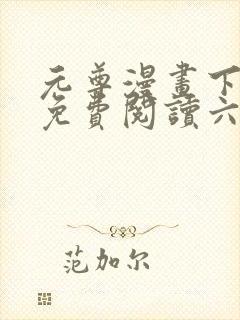 元尊漫畫下
免費閱讀六
范加尔